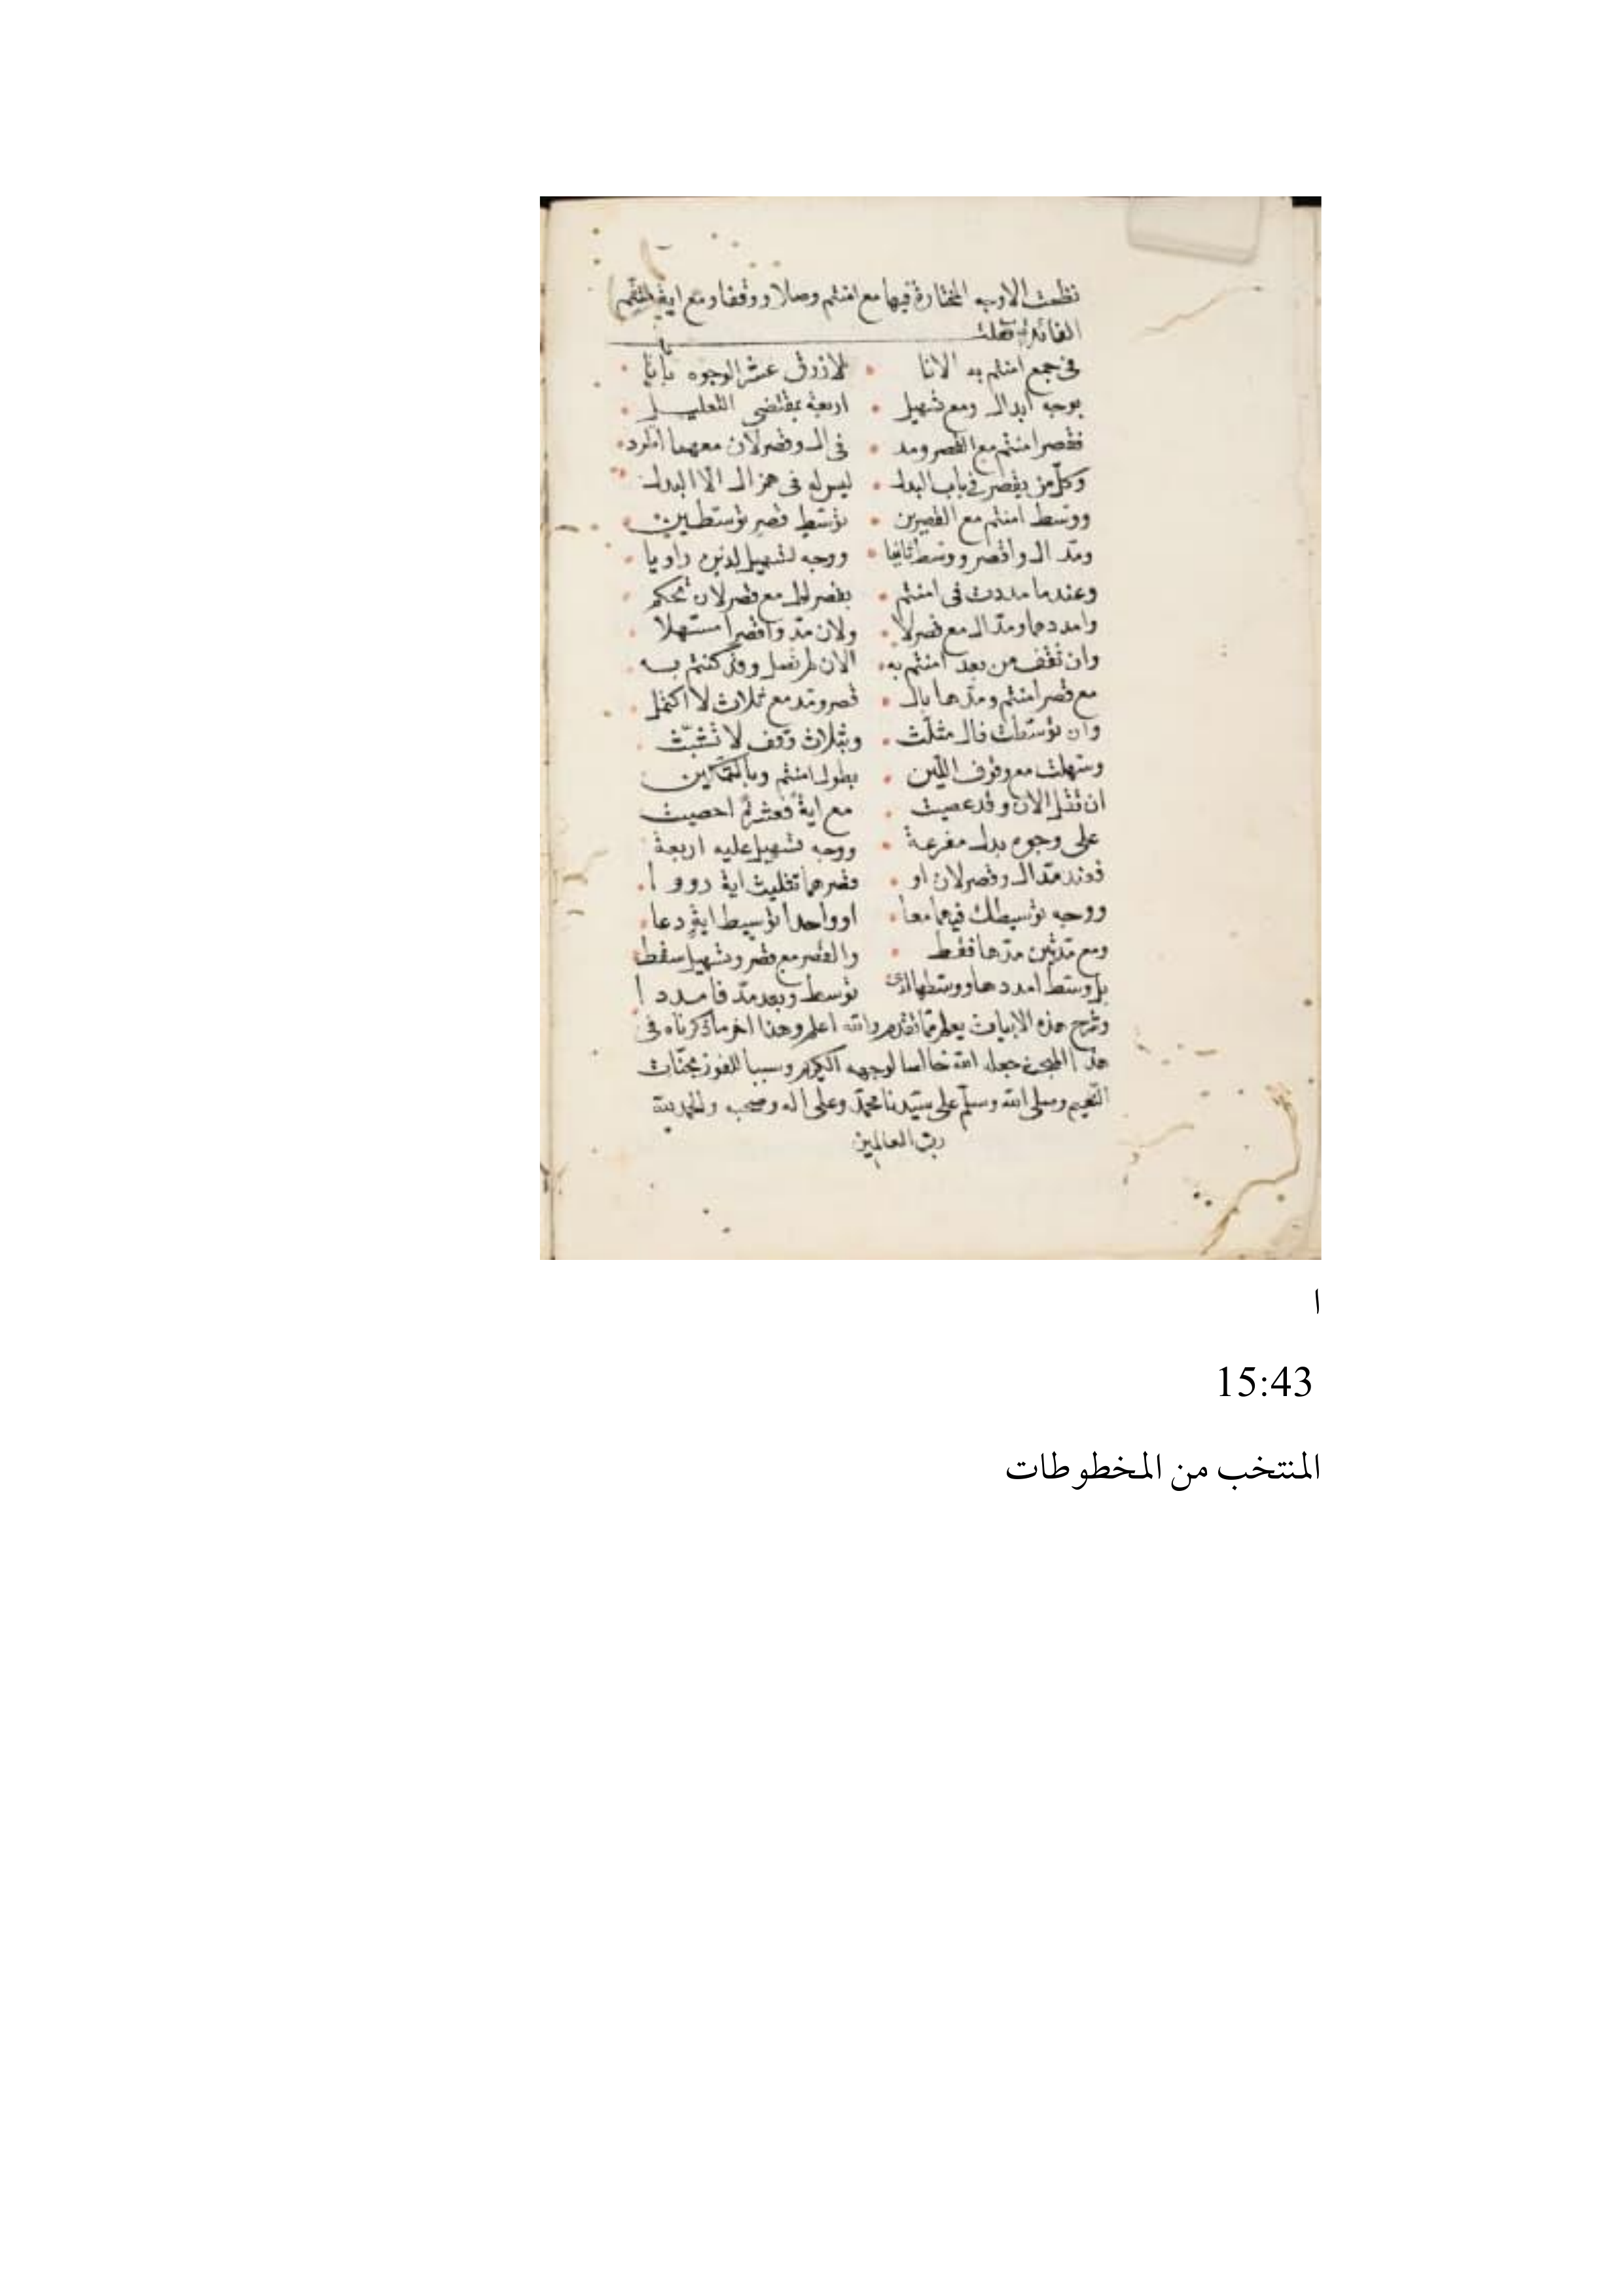 نظمت الاوجه المختارة فيها مع امنتم وصلا ووقفا ومع اية لتتم
الفائدة فقلت
فى جمع امنتم به الانا للازرق عشر الوجوه بانا
بوجه ابدال ومع تسهيل اربعة بمقتضى التعليل
فقصر امنتم مع القصر ومد فى ال وقصر لان معهما اطرد
وكل من يقصر فى باب البدل ليس له فى همز ال الا البدل
ووسط امنتم مع القصرين توسط قصر توسطين
ومد ال واقصر ووسط ثانيا ووجه تسهيل لدين راويا
وعندما مددت فى امنتم بقصر ال مع قصر لان تحكم
وامددهما ومد ال مع قصر لا ولان مد واقصر مستهلا
وان تقف من بعد امنتم به الان لم تصل وقد كنتم به
مع قصر امنتم ومدها بال قصر ومد مع ثلاث لا اكتمل
وان توسطت فال مثلث وبثلاث وقف لا تشبث
وسهلت مع وقوف اللين بطول امنتم وبالتمكين
ان تتل الان وقد عصيت مع اية فعشرة احصيت
على وجوه بدل مفرعة ووجه تسهيل عليه اربعة
فعند مد ال وقصر لان او قصرهما تثليث اية رووا
ووجه توسيطك فيهما معا او واحدا توسيط اية دعا
ومع مدين مدها فقط والقصر مع قصر وتسهيل سقط
بل وسط امددها ووسطها لدى توسط وبعد مد فامددا
وشرح هذه الابيات يعلم مما تقدم والله اعلم وهذا اخر ما ذكرناه فى
هذا جعله الله خالصا لوجهه الكريم وسببا للفوز بجنات
النعيم وصلى الله وسلم على سيدنا محمد وعلى اله وصحبه والحمد لله
رب العالمين
ا
15:43
المنتخب من المخطوطات